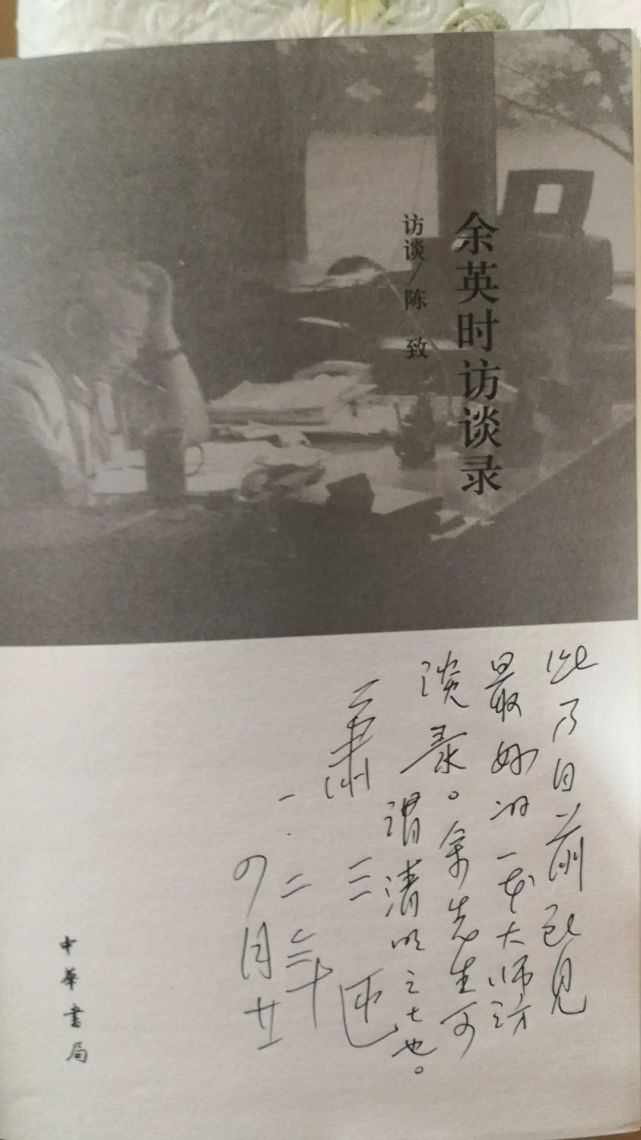 余英时访谈录
访谈/陈致
此乃目前所见
最好的一本大师访
谈录。余先生可
谓清明之士也。
萧三匝
一.二年
四月廿
中華書局